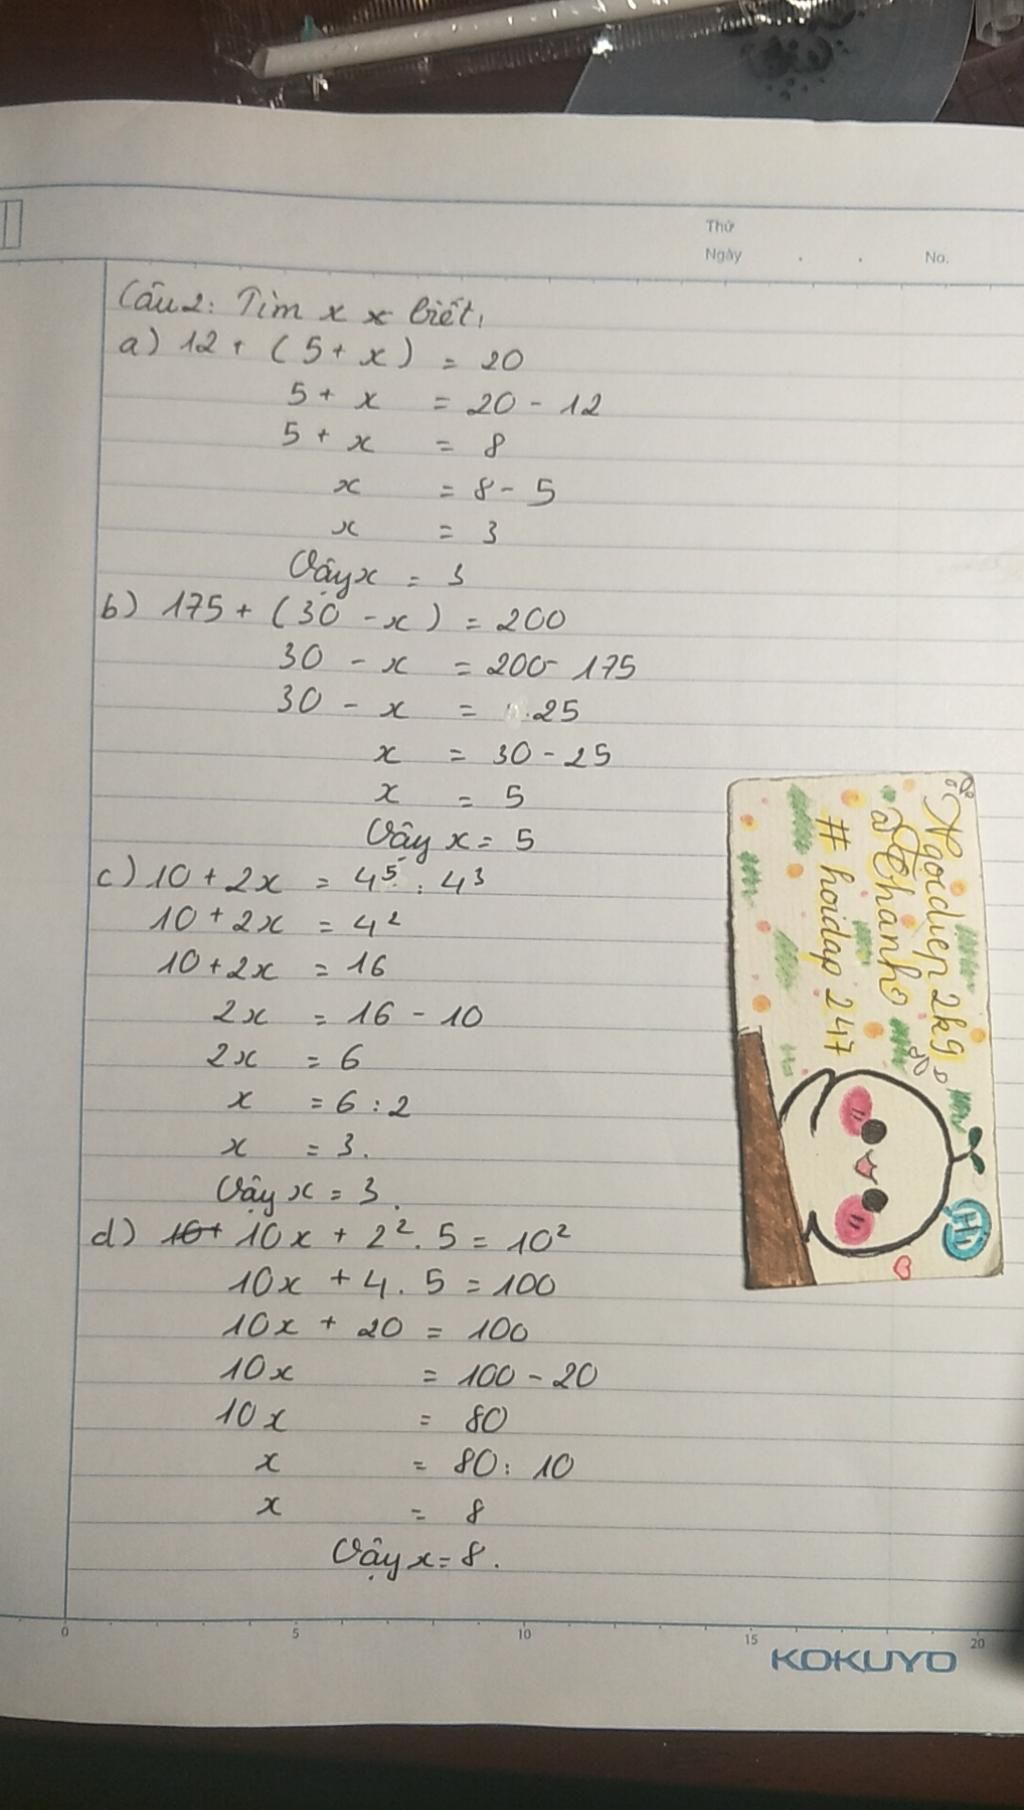 Thứ
Ngày . . No.
Câu 2: Tìm x x biết,
a) 12 + (5 + x) = 20
5 + x = 20 - 12
5 + x = 8
x = 8 - 5
x = 3
Vậy x = 3
b) 175 + (30 - x) = 200
30 - x = 200 - 175
30 - x = 25
x = 30 - 25
x = 5
Vậy x = 5
c) 10 + 2x = 4⁵ : 4³
10 + 2x = 4²
10 + 2x = 16
2x = 16 - 10
2x = 6
x = 6 : 2
x = 3.
Vậy x = 3.
d) 10+ 10x + 2² . 5 = 10²
10x + 4 . 5 = 100
10x + 20 = 100
10x = 100 - 20
10x = 80
x = 80 : 10
x = 8
Vậy x = 8.
Ngocdiep2k9
# hoidap 247
Hi
0 5 10 15 20
KOKUYO